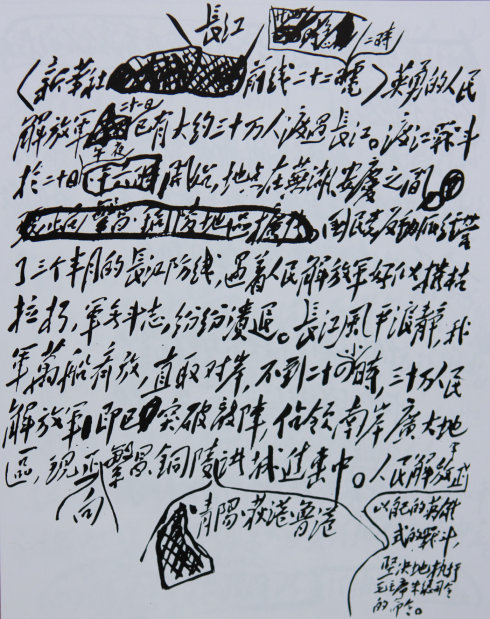 長江
二時
(新華社 前线二十二時)英勇的人民
解放軍二十一日已有大约三十万人渡過長江。渡江戰斗
於二十日午夜開始,地点在蕪湖、安慶之間。
國民党反動派经营
了三个半月的長江防线,遇着人民解放軍好似摧枯
拉朽,軍無斗志,纷纷潰退。長江風平浪靜,我
軍萬船齐放,直取对岸,不到二十四小時,三十万人民
解放軍即已突破敵陣,佔領南岸廣大地
區,現正向繁昌、銅陵、青陽、荻港、魯港諸城進擊中。人民解放軍正
以自己的英雄
式的戰斗,
堅决地执行
毛主席朱總司令
的命令。